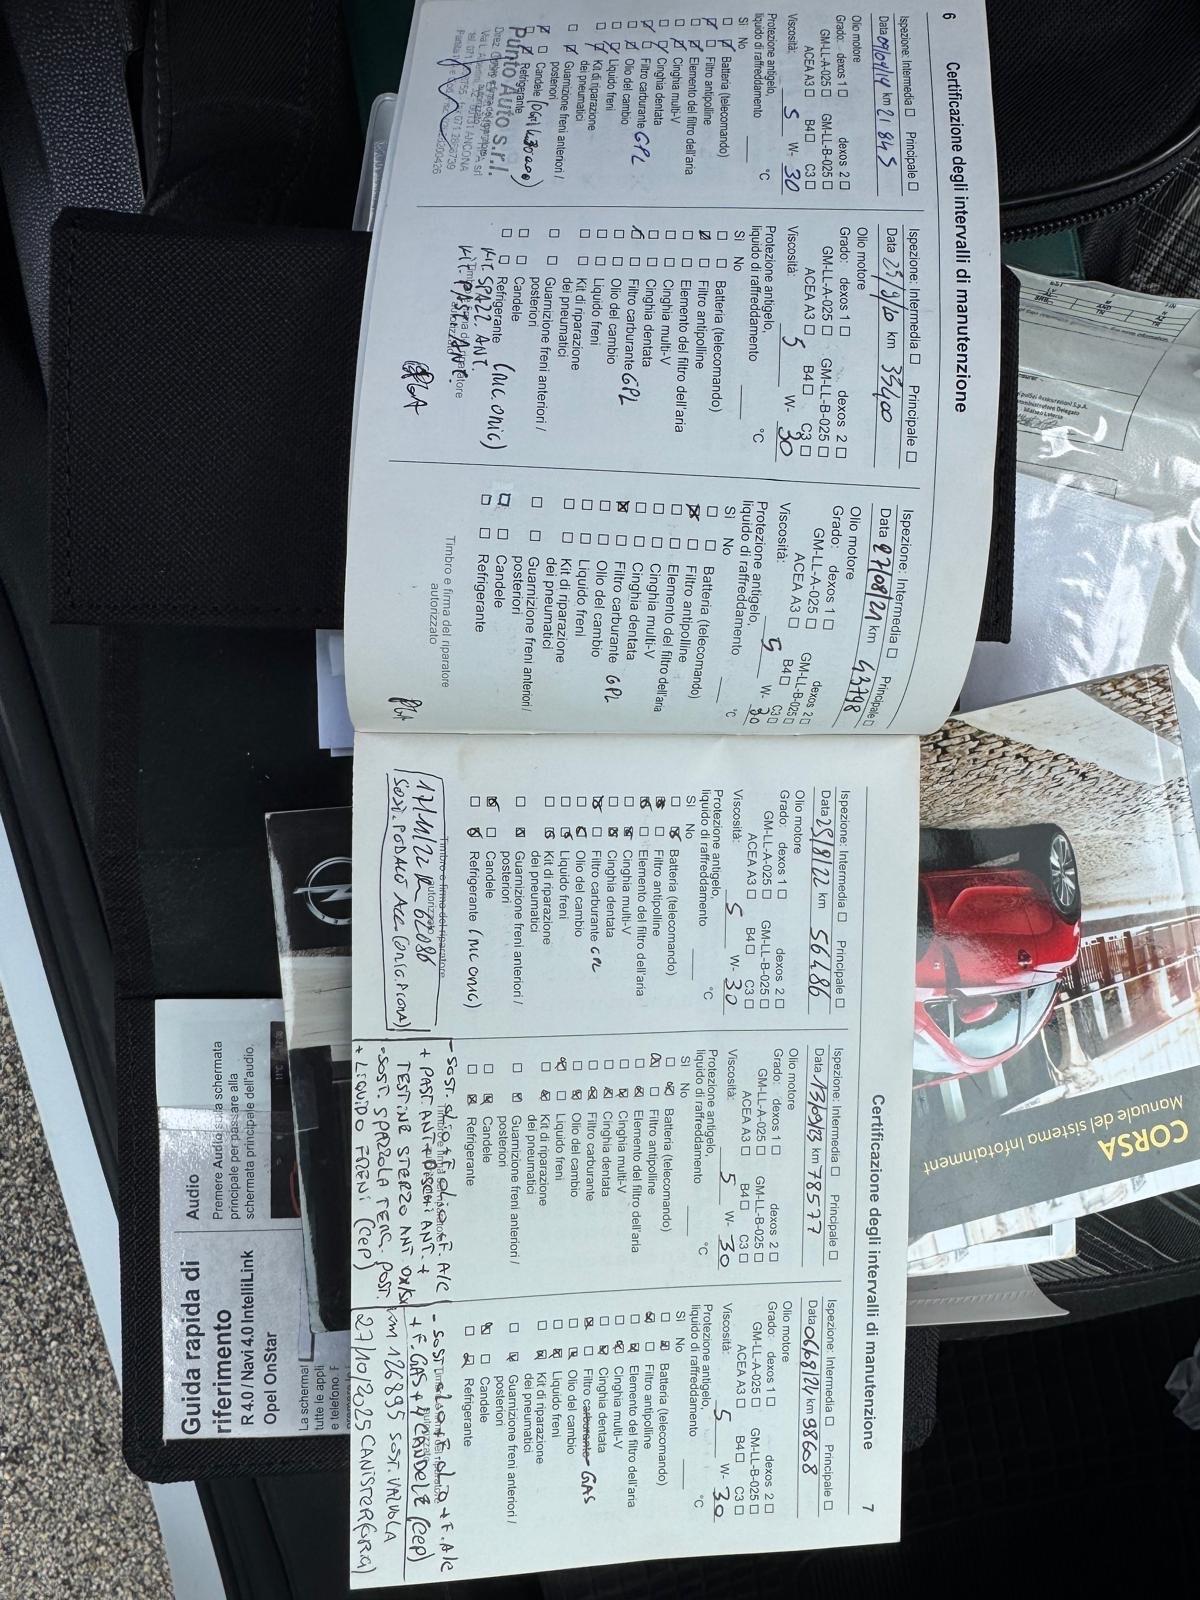 6
Certificazione degli intervalli di manutenzione
Ispezione: Intermedia □ Principale □
Data 09/04/19 km 21845
Olio motore
Grado: dexos 1 □ dexos 2 □
GM-LL-A-025 □ GM-LL-B-025 □
ACEA A3 □ B4 □ C3 □
Viscosità: 5 W- 30
Protezione antigelo,
liquido di raffreddamento °C
Sì No
Batteria (telecomando)
Filtro antipolline
Elemento del filtro dell'aria
Cinghia multi-V
Cinghia dentata
Filtro carburante GPL
Olio del cambio
Liquido freni
Kit di riparazione
dei pneumatici
Guarnizione freni anteriori /
posteriori
Candele
Refrigerante
Punto Auto s.r.l.
ANCONA
Ispezione: Intermedia □ Principale □
Data km 33400
Olio motore
Grado: dexos 1 □ dexos 2 □
GM-LL-A-025 □ GM-LL-B-025 □
ACEA A3 □ B4 □ C3 □
Viscosità: 5 W- 30
Protezione antigelo,
liquido di raffreddamento °C
Sì No
Batteria (telecomando)
Filtro antipolline
Elemento del filtro dell'aria
Cinghia multi-V
Cinghia dentata
Filtro carburante GPL
Olio del cambio
Liquido freni
Kit di riparazione
dei pneumatici
Guarnizione freni anteriori /
posteriori
Candele
Refrigerante (MC ONIG)
KIT. SPAZZ. ANT.
KIT. PAST. ANT.
Ispezione: Intermedia □ Principale □
Data 27/08/21 km 43798
Olio motore
Grado: dexos 1 □ dexos 2 □
GM-LL-A-025 □ GM-LL-B-025 □
ACEA A3 □ B4 □ C3 □
Viscosità: 5 W- 30
Protezione antigelo,
liquido di raffreddamento °C
Sì No
Batteria (telecomando)
Filtro antipolline
Elemento del filtro dell'aria
Cinghia multi-V
Cinghia dentata
Filtro carburante GPL
Olio del cambio
Liquido freni
Kit di riparazione
dei pneumatici
Guarnizione freni anteriori /
posteriori
Candele
Refrigerante
Timbro e firma del riparatore
autorizzato
Certificazione degli intervalli di manutenzione
7
Ispezione: Intermedia □ Principale □
Data 25/8/22 km 56486
Olio motore
Grado: dexos 1 □ dexos 2 □
GM-LL-A-025 □ GM-LL-B-025 □
ACEA A3 □ B4 □ C3 □
Viscosità: 5 W- 30
Protezione antigelo,
liquido di raffreddamento °C
Sì No
Batteria (telecomando)
Filtro antipolline
Elemento del filtro dell'aria
Cinghia multi-V
Cinghia dentata
Filtro carburante GPL
Olio del cambio
Liquido freni
Kit di riparazione
dei pneumatici
Guarnizione freni anteriori /
posteriori
Candele
Refrigerante (MC ONIG)
Timbro e firma del riparatore
autorizzato
17/11/22 km 62086
Ispezione: Intermedia □ Principale □
Data 13/09/23 km 78577
Olio motore
Grado: dexos 1 □ dexos 2 □
GM-LL-A-025 □ GM-LL-B-025 □
ACEA A3 □ B4 □ C3 □
Viscosità: 5 W- 30
Protezione antigelo,
liquido di raffreddamento °C
Sì No
Batteria (telecomando)
Filtro antipolline
Elemento del filtro dell'aria
Cinghia multi-V
Cinghia dentata
Filtro carburante
Olio del cambio
Liquido freni
Kit di riparazione
dei pneumatici
Guarnizione freni anteriori /
posteriori
Candele
Refrigerante
- SOST. OLIO + F. OLIO + F. A/C
+ PAST ANT + DISCHI ANT. +
TESTINE STERZO ANT DX/SX
- SOST. SPAZZOLA TERG. POST.
+ LIQUIDO FRENI (CEP)
Ispezione: Intermedia □ Principale □
Data 06/8/24 km 98608
Olio motore
Grado: dexos 1 □ dexos 2 □
GM-LL-A-025 □ GM-LL-B-025 □
ACEA A3 □ B4 □ C3 □
Viscosità: 5 W- 30
Protezione antigelo,
liquido di raffreddamento °C
Sì No
Batteria (telecomando)
Filtro antipolline
Elemento del filtro dell'aria
Cinghia multi-V
Cinghia dentata
Filtro carburante GAS
Olio del cambio
Liquido freni
Kit di riparazione
dei pneumatici
Guarnizione freni anteriori /
posteriori
Candele
Refrigerante
- SOST. OLIO + F. OLIO + F. A/C
+ F. GAS + 4 CANDELE (CEP)
KM 126895 SOST. VALVOLA
27/10/2025 CANISTER
CORSA
Manuale del sistema Infotainment
Audio
Premere Audio sulla schermata
principale per passare alla
schermata principale dell'audio.
Guida rapida di
riferimento
R 4.0 / Navi 4.0 IntelliLink
Opel OnStar
La schermat
tutte le appli
e telefono.